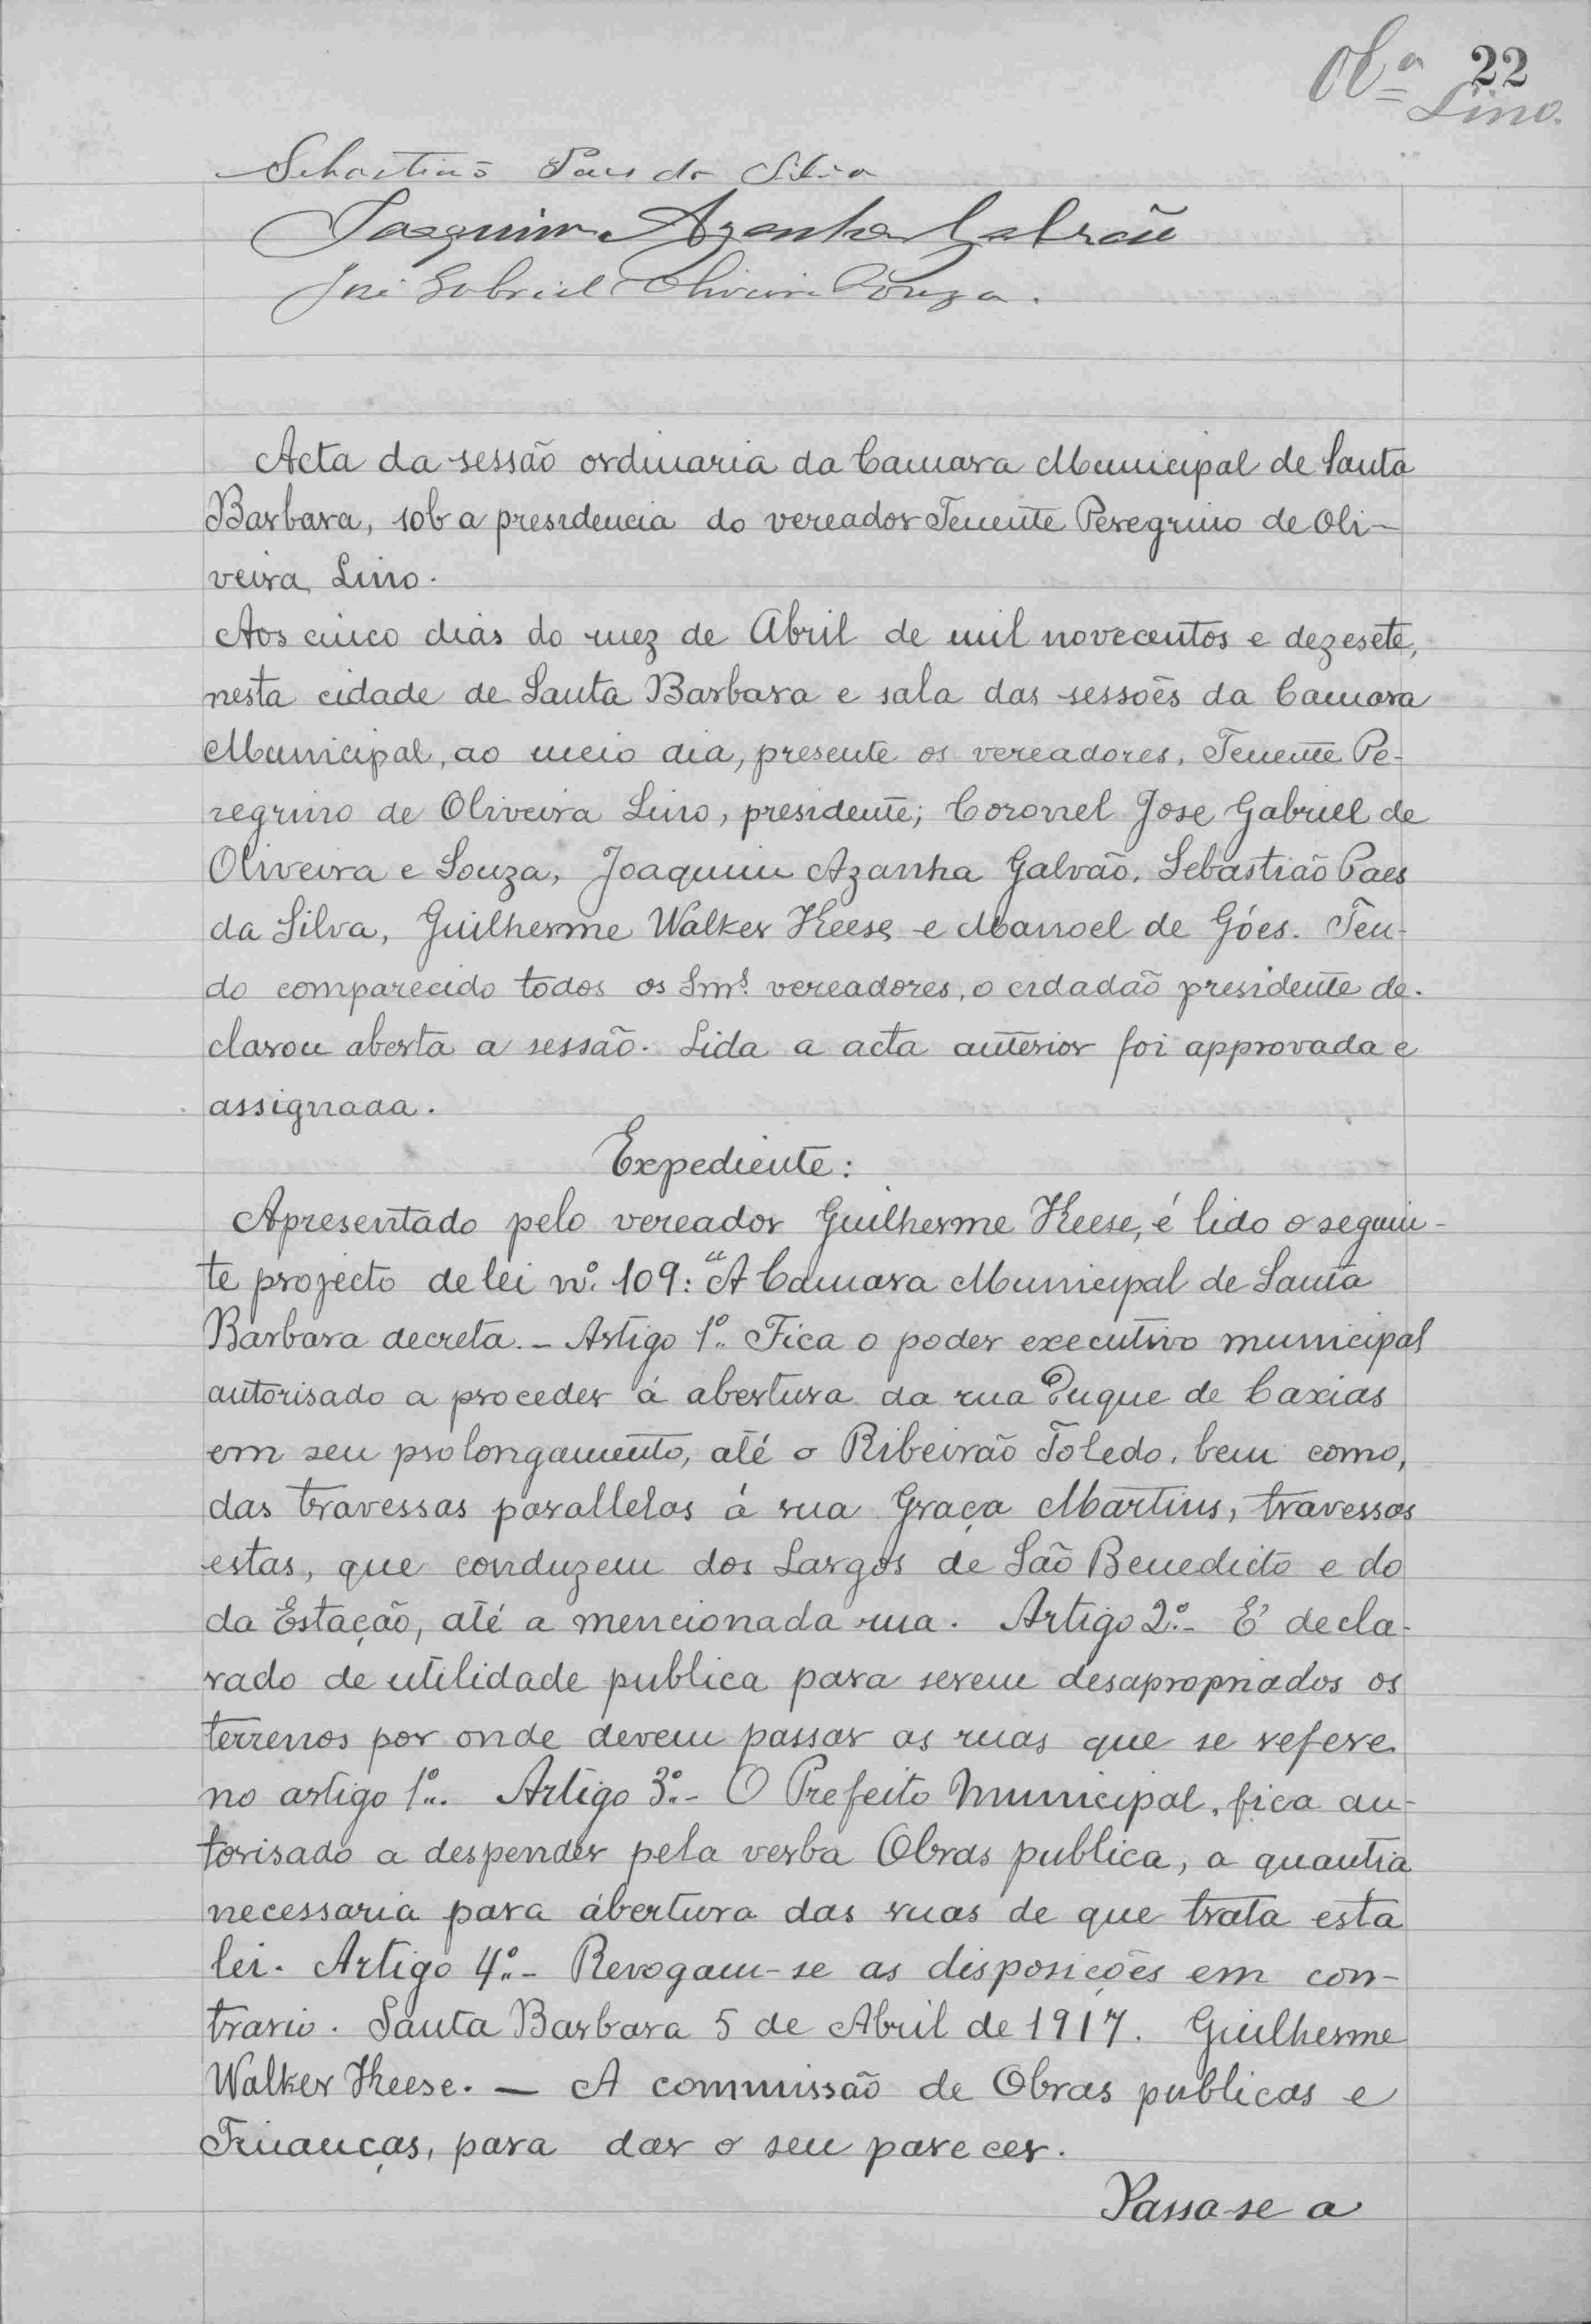 22
Lino.
Sebastião Paes da Silva
Joaquim Azanha Galvão
José Gabriel Oliveira Souza.
Acta da sessão ordinaria da Camara Municipal de Santa
Barbara, sob a presidencia do vereador Tenente Peregrino de Oli-
veira Lino.
Aos cinco dias do mez de Abril de mil novecentos e dezesete,
nesta cidade de Santa Barbara e sala das sessoẽs da Camara
Municipal, ao meio dia, presente os vereadores, Tenente Pe-
regrino de Oliveira Lino, presidente; Coronel Jose Gabriel de
Oliveira e Souza, Joaquim Azanha Galvão, Sebastião Paes
da Silva, Guilherme Walker Keese e Manoel de Góes. Ten-
do comparecido todos os Snrs. vereadores, o cidadaõ presidente de-
clarou aberta a sessão. Lida a acta anterior foi approvada e
assignada.
Expediente:
Apresentado pelo vereador Guilherme Keese, é lido o seguin-
te projecto de lei nº. 109: "A Camara Municipal de Santa
Barbara decreta. - Artigo 1º. Fica o poder executivo municipal
autorisado a proceder á abertura da rua Duque de Caxias
em seu prolongamento, até o Ribeirão Toledo, bem como,
das travessas parallelas á rua Graça Martins, travessas
estas, que conduzem dos Largos de São Benedicto e do
da Estação, até a mencionada rua. Artigo 2º.- E' decla-
rado de utilidade publica para serem desapropriados os
terrenos por onde devem passar as ruas que se refere
no artigo 1º.. Artigo 3º.- O Prefeito Municipal, fica au-
torisado a despender pela verba Obras publica, a quantia
necessaria para ábertura das ruas de que trata esta
lei. Artigo 4º.- Revogam-se as disposicções em con-
trario. Santa Barbara 5 de Abril de 1917. Guilherme
Walker Keese. — A commissão de Obras publicas e
Finanças, para dar o seu parecer.
Passa-se a